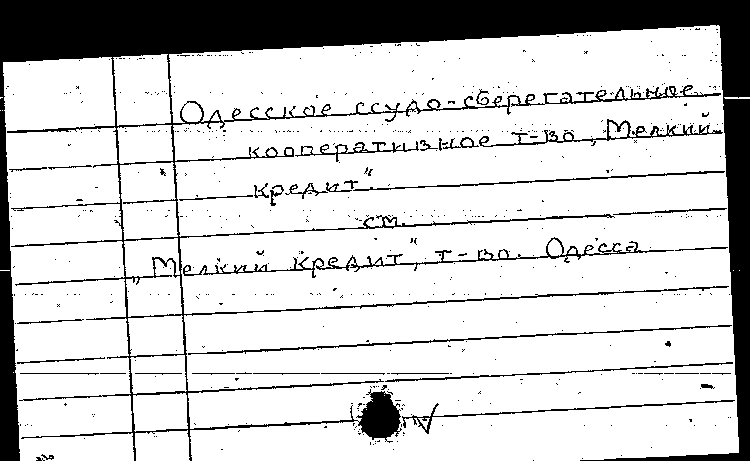 Одесское ссудо-сберегательное
кооперативное т-во „Мелкий
кредит".
см.
„Мелкий кредит", т-во. Одесса